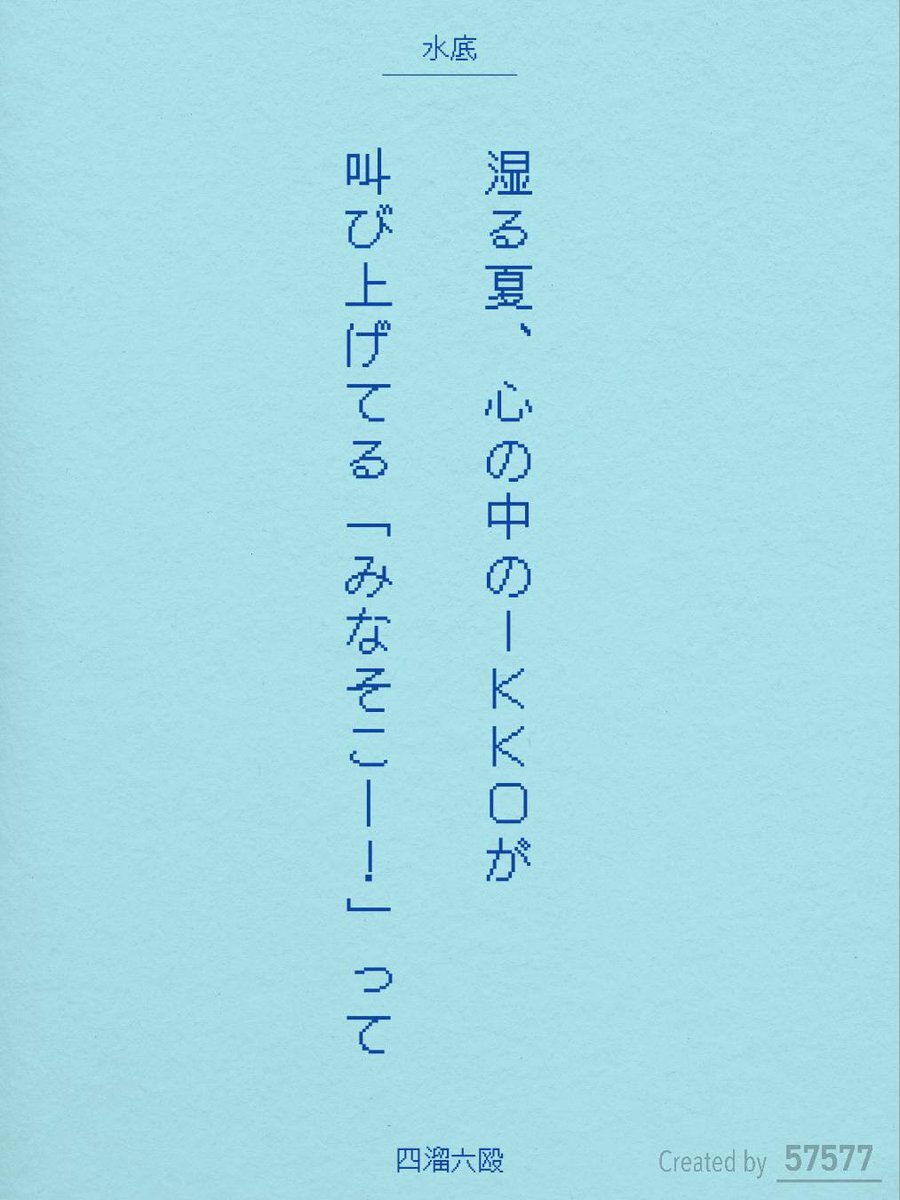 水底
湿る夏、心の中のIKKOが
叫び上げてる「みなそこー！」って
四溜六殴
Created by 57577